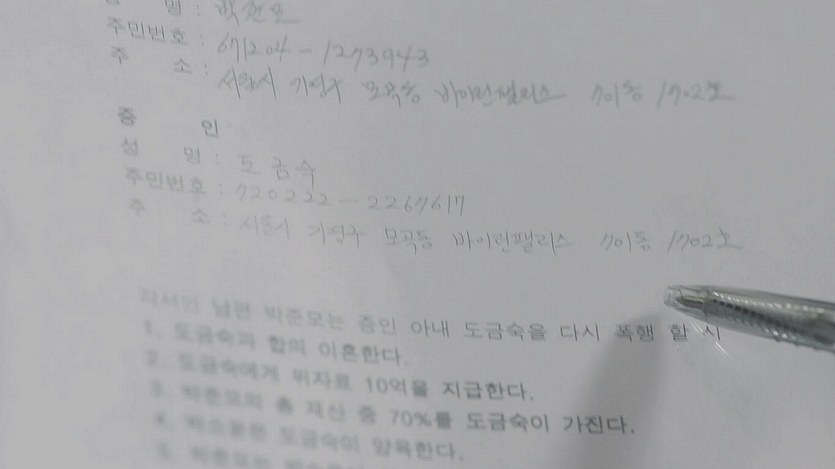 성 명 : 박준모
주민번호 : 671204 - 1273943
주 소 : 서울시 기영구 모곡동 바이런팰리스 701동 1702호
증 인
성 명 : 도금숙
주민번호 : 720222 - 2267617
주 소 : 서울시 기영구 모곡동 바이런팰리스 701동 1702호
남편 박준모는 증인 아내 도금숙을 다시 폭행 할 시
1. 도금숙과 합의 이혼한다.
2. 도금숙에게 위자료 10억을 지급한다.
3. 박준모의 총 재산 중 70%를 도금숙이 가진다.
4. 도금숙이 양육한다.
5. 박준모는